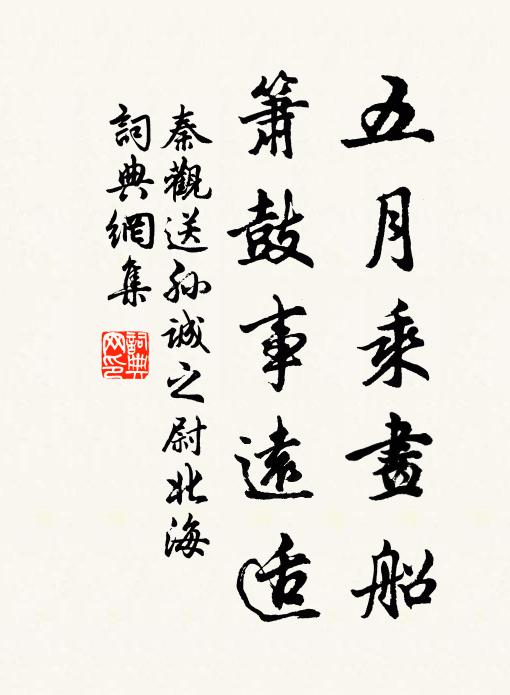 五月乘畫船
簫鼓事遠适
秦觀送孫誠之尉北海
詞典網集
詞典網印